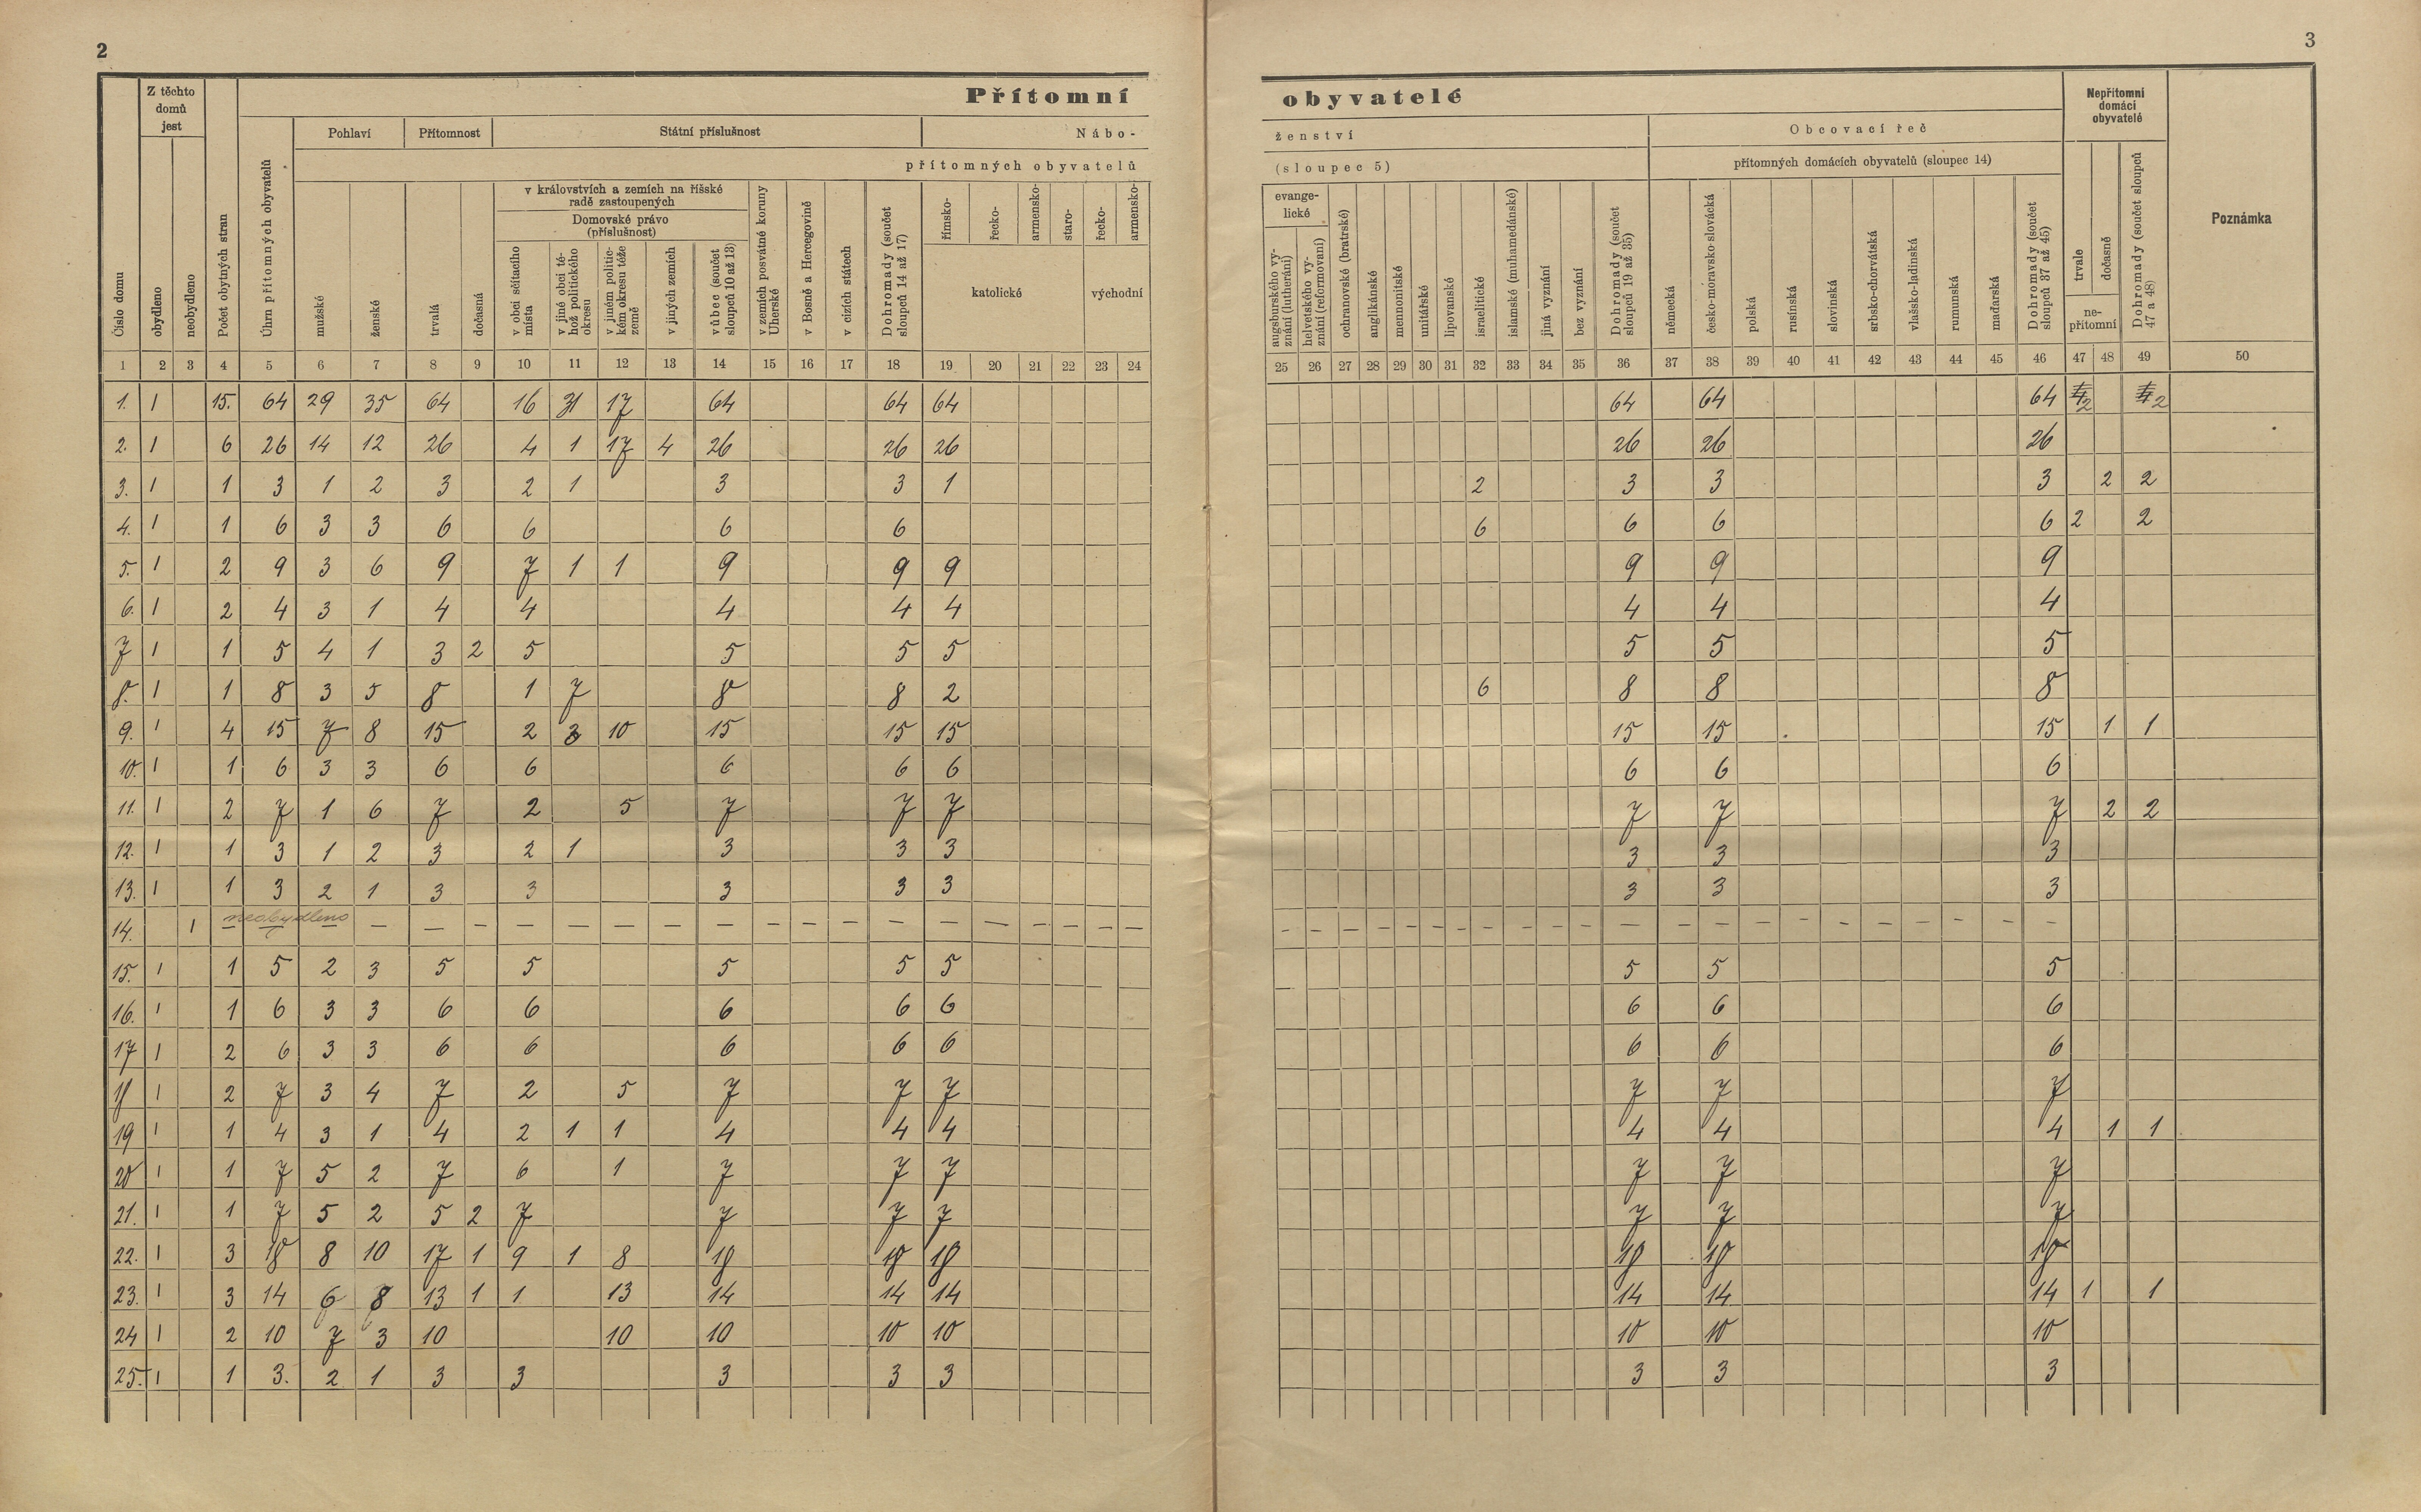 2
3
Přítomní obyvatelé
Z těchto domů jest
Pohlaví
Přítomnost
Státní příslušnost
Nábo-
ženství
Obcovací řeč
Nepřítomní domácí obyvatelé
přítomných obyvatelů
(sloupec 5)
přítomných domácích obyvatelů (sloupec 14)
Číslo domu
obydleno
neobydleno
Počet obytných stran
Úhrn přítomných obyvatelů
mužské
ženské
trvalá
dočasná
v královstvích a zemích na říšské radě zastoupených
Domovské právo (příslušnost)
v obci sčítacího místa
v jiné obci téhož politického okresu
v jiném politickém okresu téže země
v jiných zemích
vůbec (součet sloupců 10 až 13)
v zemích posvátné koruny Uherské
v Bosně a Hercegovině
v cizích státech
Dohromady (součet sloupců 14 až 17)
římsko-
řecko-
armensko-
staro-
řecko-
armensko-
katolické
východní
evangelické
augsburského vyznání (lutheráni)
helvetského vyznání (reformovaní)
ochranovské (bratrské)
anglikánské
mennonitské
unitářské
lipovanské
israelitické
islamské (muhamedánské)
jiná vyznání
bez vyznání
Dohromady (součet sloupců 19 až 35)
německá
česko-moravsko-slovácká
polská
rusínská
slovinská
srbsko-chorvátská
vlašsko-ladinská
rumunská
maďarská
Dohromady (součet sloupců 37 až 45)
trvale
dočasně
nepřítomní
Dohromady (součet sloupců 47 a 48)
Poznámka
1 2 3 4 5 6 7 8 9 10 11 12 13 14 15 16 17 18 19 20 21 22 23 24 25 26 27 28 29 30 31 32 33 34 35 36 37 38 39 40 41 42 43 44 45 46 47 48 49 50
1. 1 15. 64 29 35 64 16 31 17 64 64 64 64 64 64 2 2
2. 1 6 26 14 12 26 4 1 17 4 26 26 26 26 26 26
3. 1 1 3 1 2 3 2 1 3 3 1 2 3 3 3 2 2
4. 1 1 6 3 3 6 6 6 6 6 6 6 6 2 2
5. 1 2 9 3 6 9 7 1 1 9 9 9 9 9 9
6. 1 2 4 3 1 4 4 4 4 4 4 4 4
7 1 1 5 4 1 3 2 5 5 5 5 5 5 5
8. 1 1 8 3 5 8 1 7 8 8 2 6 8 8 8
9. 1 4 15 7 8 15 2 3 10 15 15 15 15 15 15 1 1
10. 1 1 6 3 3 6 6 6 6 6 6 6 6
11. 1 2 7 1 6 7 2 5 7 7 7 7 7 7 2 2
12. 1 1 3 1 2 3 2 1 3 3 3 3 3 3
13. 1 1 3 2 1 3 3 3 3 3 3 3 3
14. 1 neobydleno — — — — — — — — — — — — — — — — — — — — — — — — — — — — — — — — — — — — — — — — — — —
15. 1 1 5 2 3 5 5 5 5 5 5 5 5
16. 1 1 6 3 3 6 6 6 6 6 6 6 6
17 1 2 6 3 3 6 6 6 6 6 6 6 6
18 1 2 7 3 4 7 2 5 7 7 7 7 7 7
19 1 1 4 3 1 4 2 1 1 4 4 4 4 4 4 1 1
20 1 1 7 5 2 7 6 1 7 7 7 7 7 7
21. 1 1 7 5 2 5 2 7 7 7 7 7 7 7
22. 1 3 18 8 10 17 1 9 1 8 18 18 18 18 18 18
23. 1 3 14 6 8 13 1 1 13 14 14 14 14 14 14 1 1
24 1 2 10 7 3 10 10 10 10 10 10 10 10
25. 1 1 3. 2 1 3 3 3 3 3 3 3 3